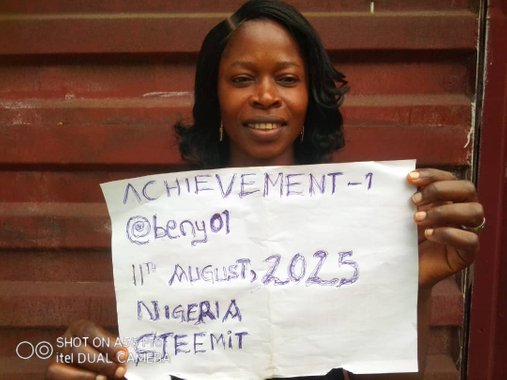 ACHIEVEMENT-1
@beny01
11TH AUGUST, 2025
NIGERIA
STEEMIT
SHOT ON
itel DUAL CAMERA